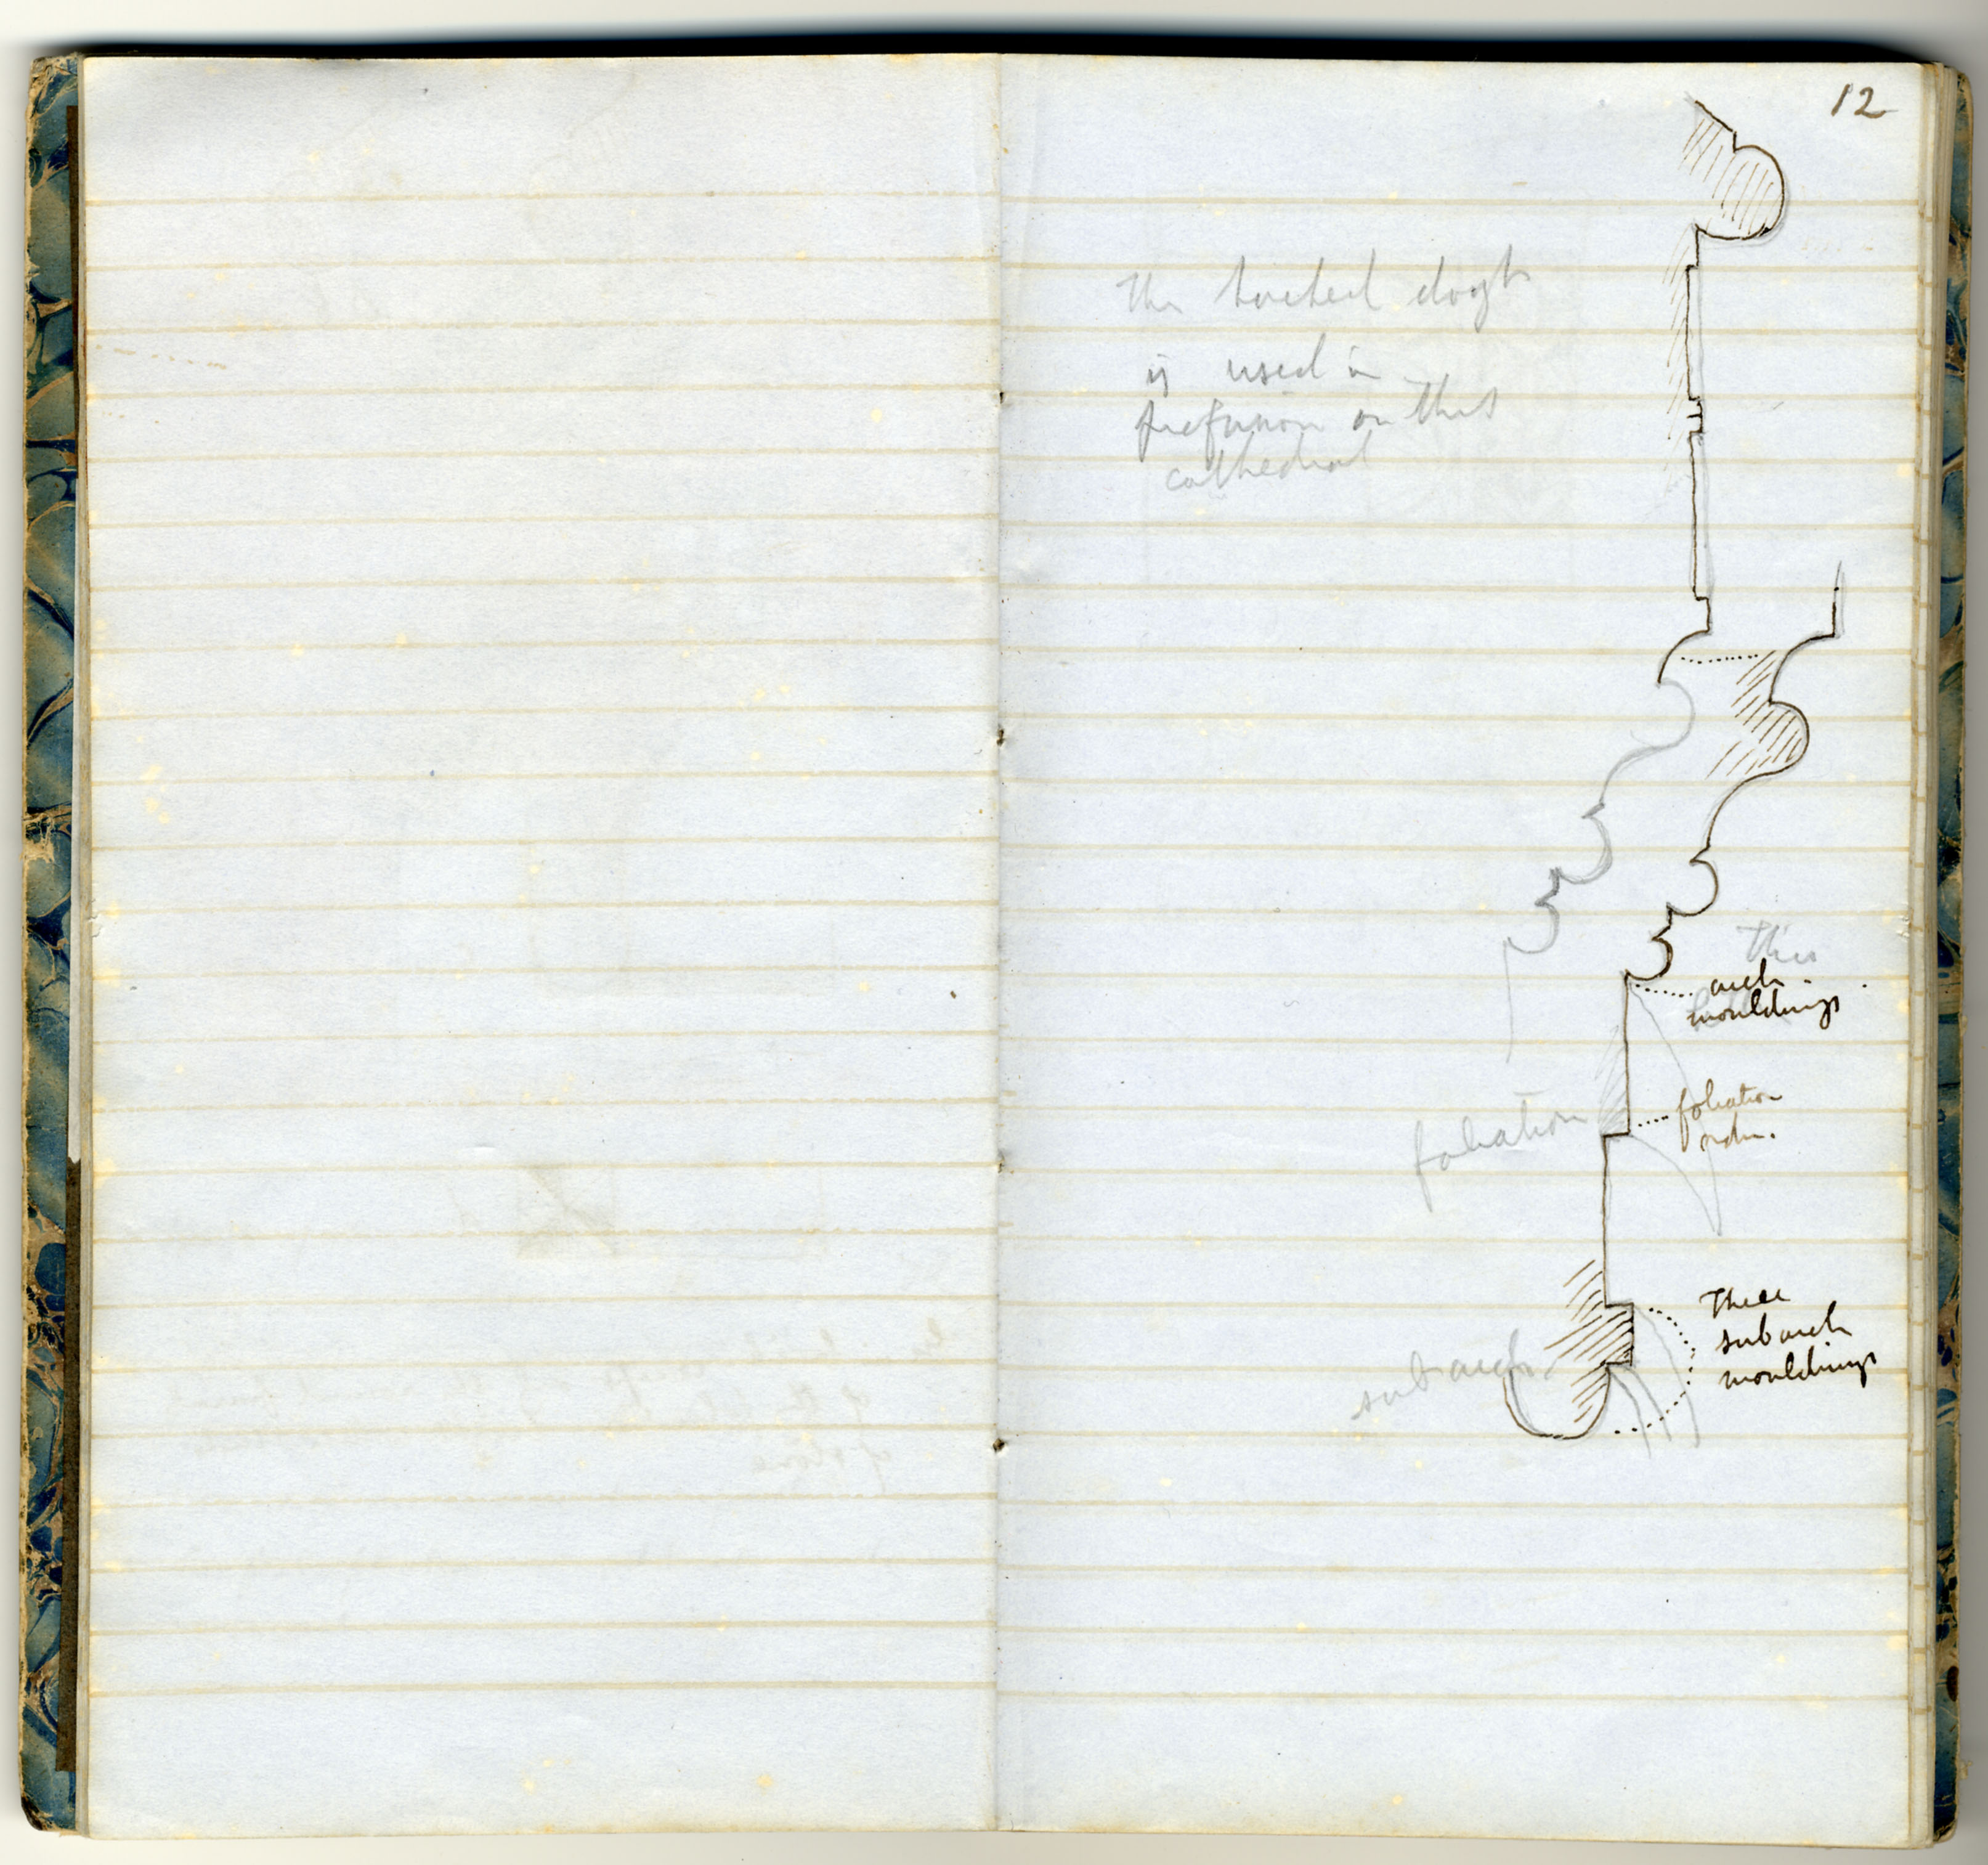 12
The toothed dogt
is used in
profusion on this
cathedral
This
arch
mouldings
foliation
order.
foliation
These
subarch
mouldings
subarch